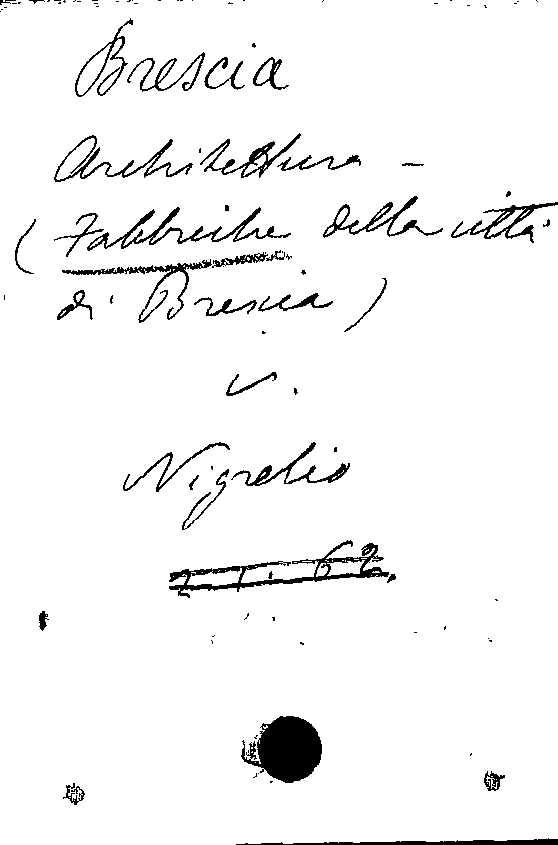 Brescia
Architettura -
( Fabbriche della città
di Brescia )
v.
Nigrelio
2 1. 62.